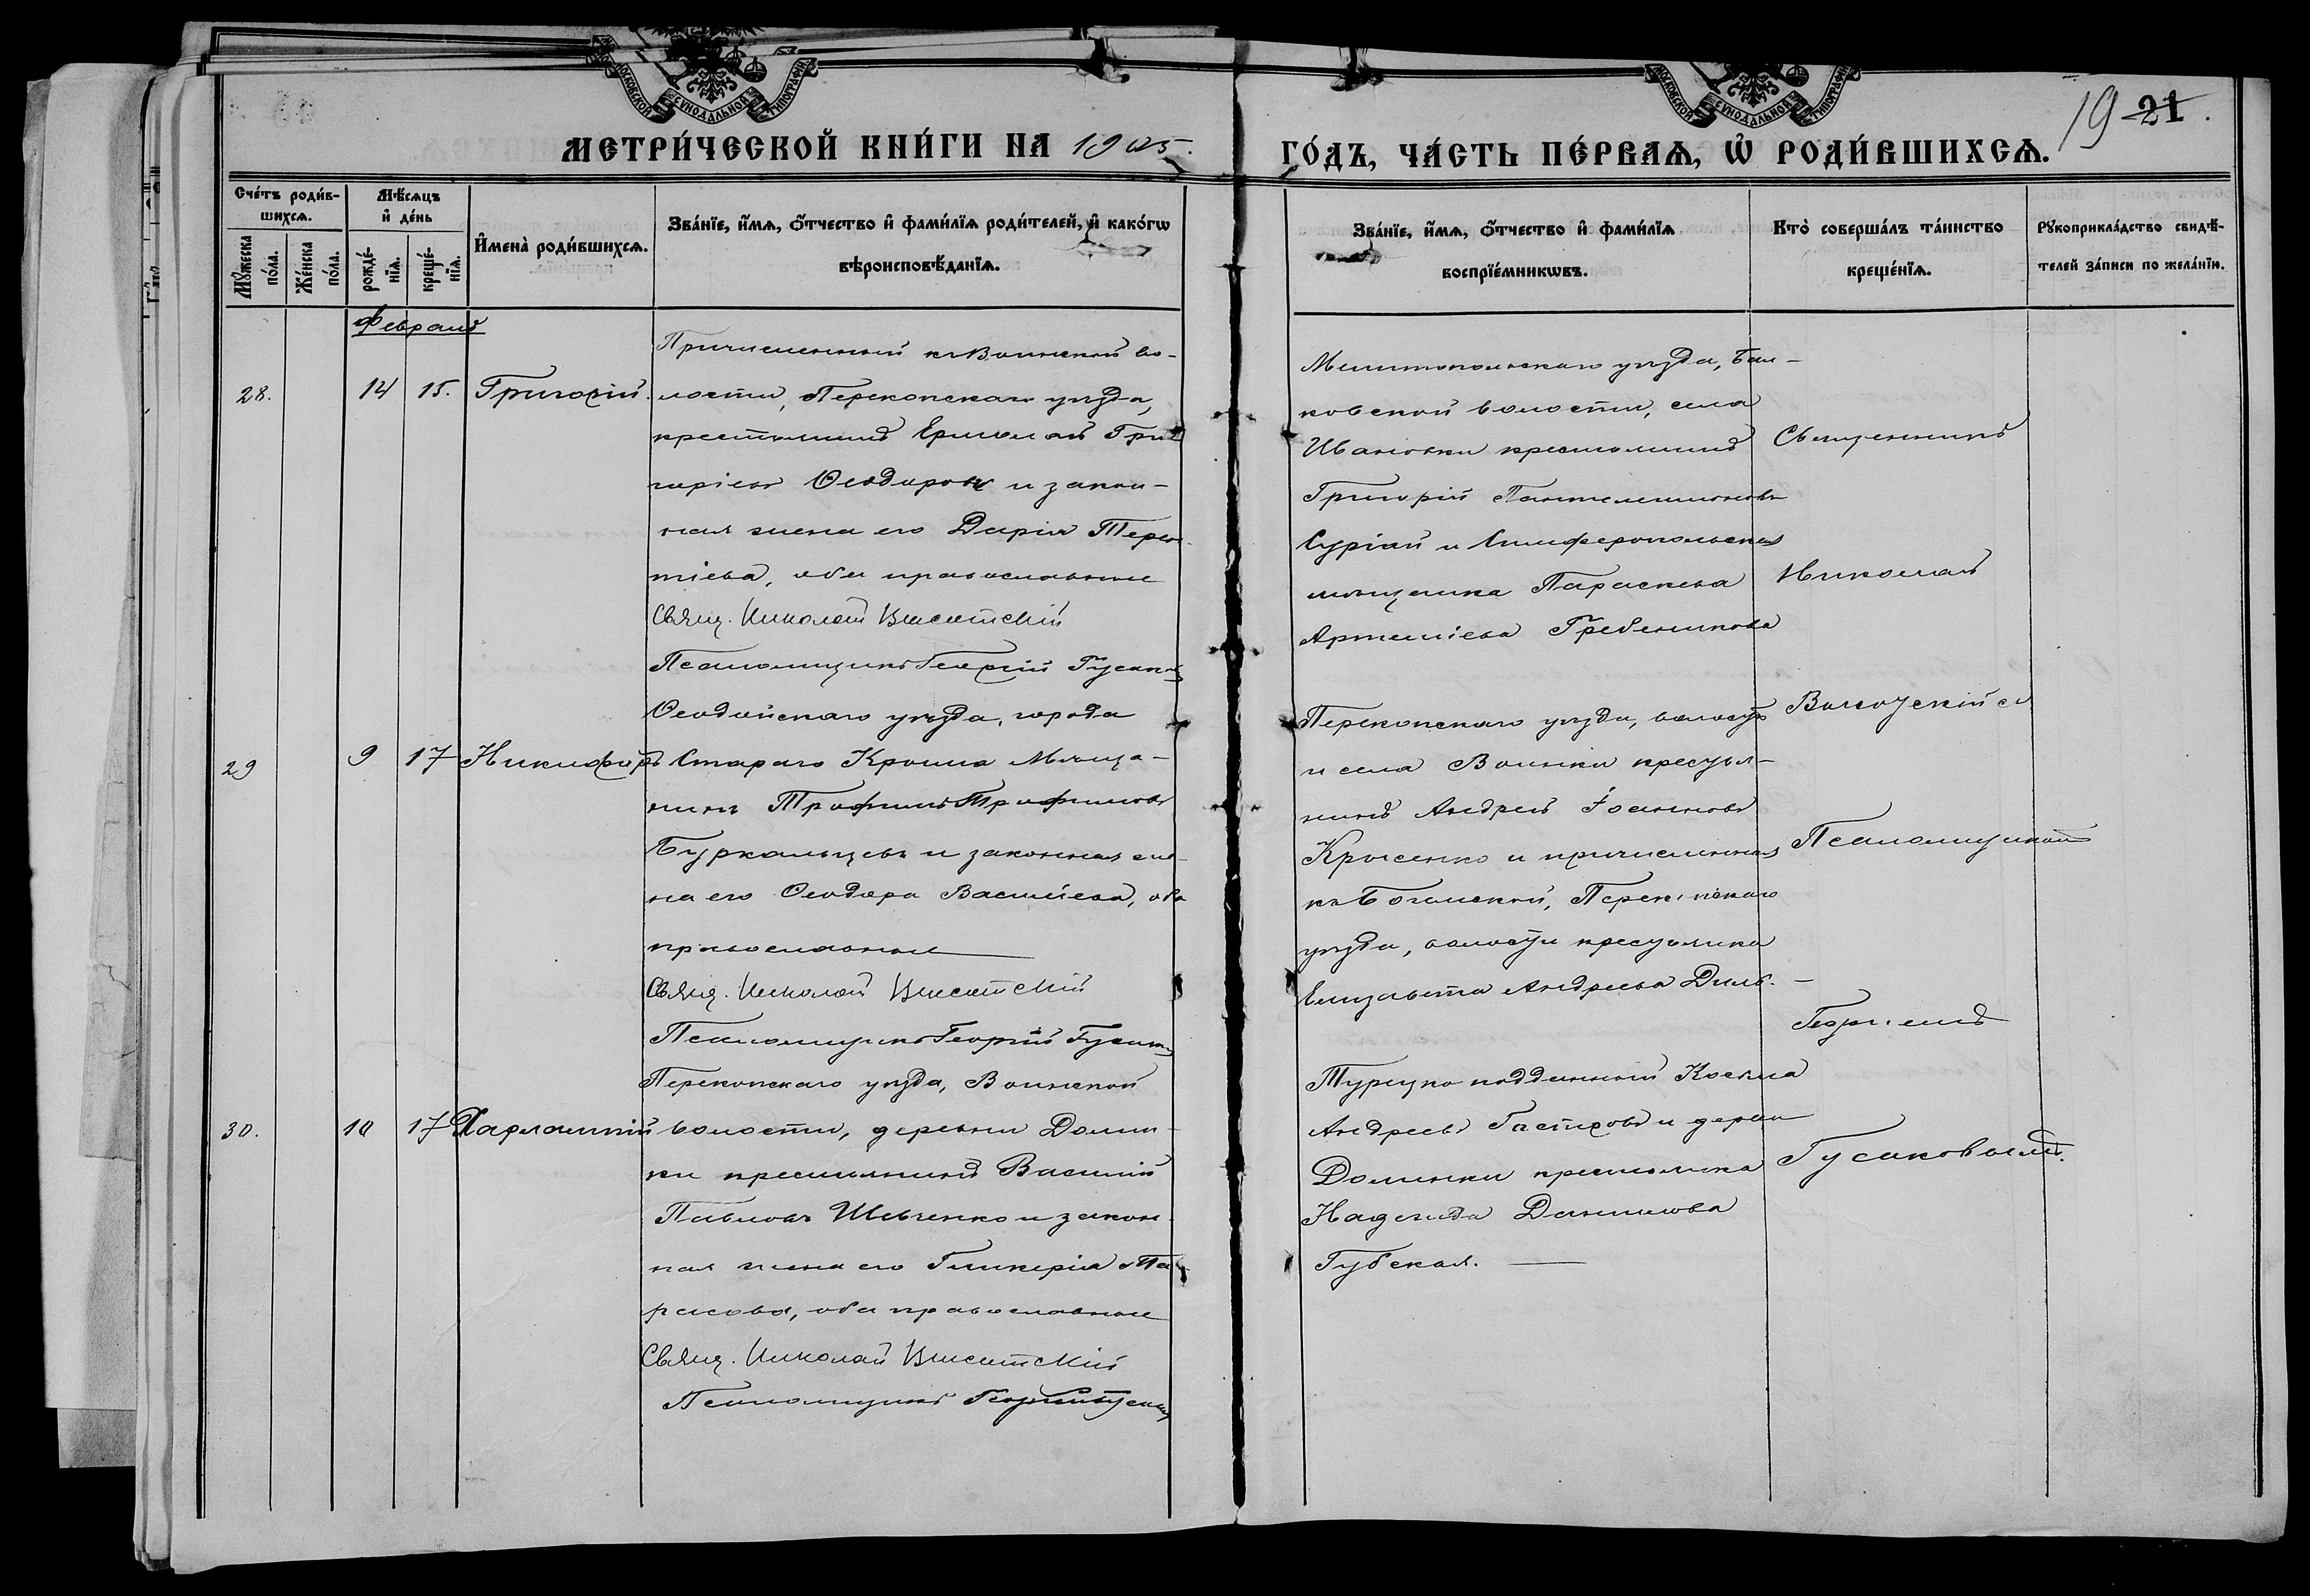 МОСКОВСКОЙ СѴНОДАЛЬНОЙ ТИПОГРАФИ
МОСКОВСКОЙ СѴНОДАЛЬНОЙ ТИПОГРАФИ
19 21.
МЕТРИ́ЧЕСКОЙ КНИ́ГИ НА 1905.
ГО́ДЪ, ЧА́СТЬ ПЕ́РВАѦ, Ѡ҆ РОДИ́ВШИХСѦ.
Сче́тъ роди́в-
шихсѧ.
Мꙋ́жеска по́ла.
Же́нска по́ла.
Мѣ́сѧцъ
и҆ де́нь
рожде́-
нїѧ.
креще́-
нїѧ.
И҆мена̀ роди́вшихсѧ.
Зва́нїе, и҆́мѧ, ѻ҆́тчество и҆ фами́лїѧ роди́телей, и҆ како́гѡ
вѣроисповѣ́данїѧ.
Зва́нїе, и҆́мѧ, ѻ҆́тчество и҆ фами́лїѧ
воспрїе́мникѡвъ.
Кто̀ соверша́лъ та́инство
креще́нїѧ.
Рꙋкоприкла́дство свидѣ́-
телей за́писи по жела́нїю.
Февраль
28.
14
15.
Григорій.
Причисленный къ Воинской во-
лости, Перекопскаго уѣзда,
крестьянинъ Ермолай Гри-
горіевъ Ѳеодоровъ и закон-
ная жена его Дарія Терен-
тіева, оба православные
Свящ. Николай Высотскій
Псаломщикъ Георгій Гусаковъ
Мелитопольскаго уѣзда, Бал-
ковской волости, села
Ивановки крестьянинъ
Григорій Пантелеимоновъ
Сургай и Симферопольская
мѣщанка Параскева
Артеміева Гребенникова
29
9
17
Никифоръ
Ѳеодосійскаго уѣзда, города
Стараго Крыма мѣща-
нинъ Трофимъ Трофимовъ
Буркальцевъ и законная же-
на его Ѳеодора Василіева, оба
православные
Свящ. Николай Высотскій
Псаломщикъ Георгій Гусаковъ
Перекопскаго уѣзда, волости
и села Воинки крестья-
нинъ Андрей Іоанновъ
Крысенко и причисленная
къ Богемской, Перекопскаго
уѣзда, волости крестьянка
Елизавета Андреева Диль.
30.
10
17
Харлампій
Перекопскаго уѣзда, Воинской
волости, деревни Долин-
ки крестьянинъ Василій
Павловъ Шевченко и закон-
ная жена его Гликерія Та-
расова, оба православные
Свящ. Николай Высотскій
Псаломщикъ Георгій Гусаковъ
Турецко подданный Косьма
Андреевъ и дерев.
Долинки крестьянка
Надежда Данилова
Губская.
Священникъ
Николай
Высотскій съ
Псаломщикомъ
Георгіемъ
Гусаковымъ.